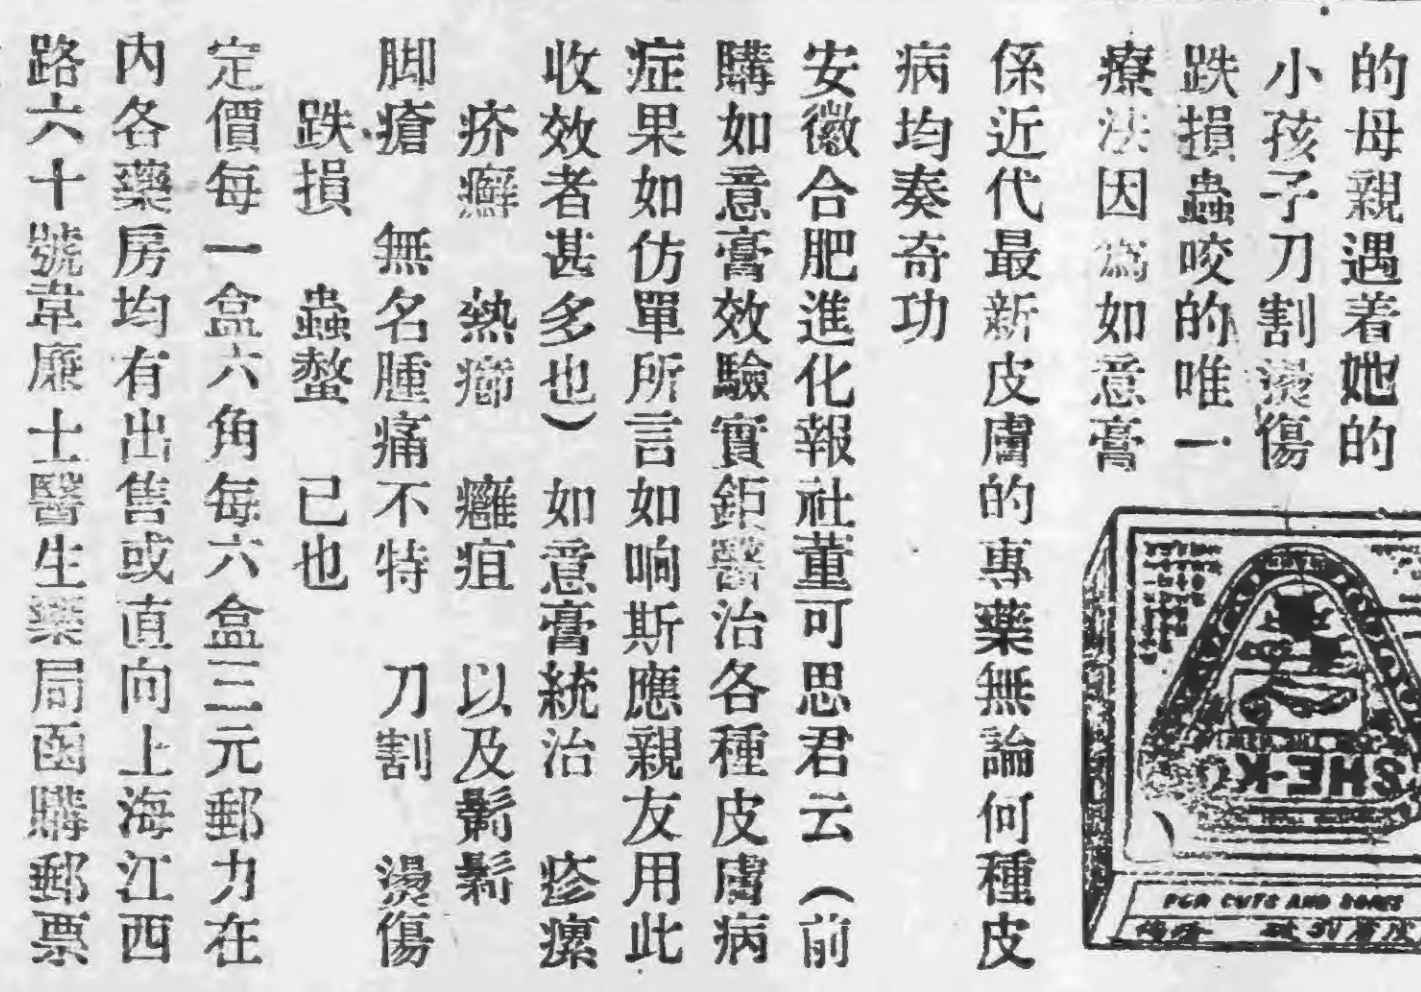 的母親遇着她的
小孩子刀割燙傷
跌損蟲咬的唯一
療法因爲如意膏
係近代最新皮膚的專藥無論何種皮
病均奏奇功
安徽合肥進化報社董可思君云（前
購如意膏效驗實鉅醫治各種皮膚病
症果如仿單所言如响斯應親友用此
收效者甚多也）如意膏統治 疹瘰
疥癬 熱癤 癰疽 以及鬎鬁
脚瘡 無名腫痛不特 刀割 燙傷
跌損 蟲螫 已也
定價每一盒六角每六盒三元郵力在
內各藥房均有出售或直向上海江西
路六十號韋廉士醫生藥局函購郵票
SHE-K
FOR CUTS AND SORES